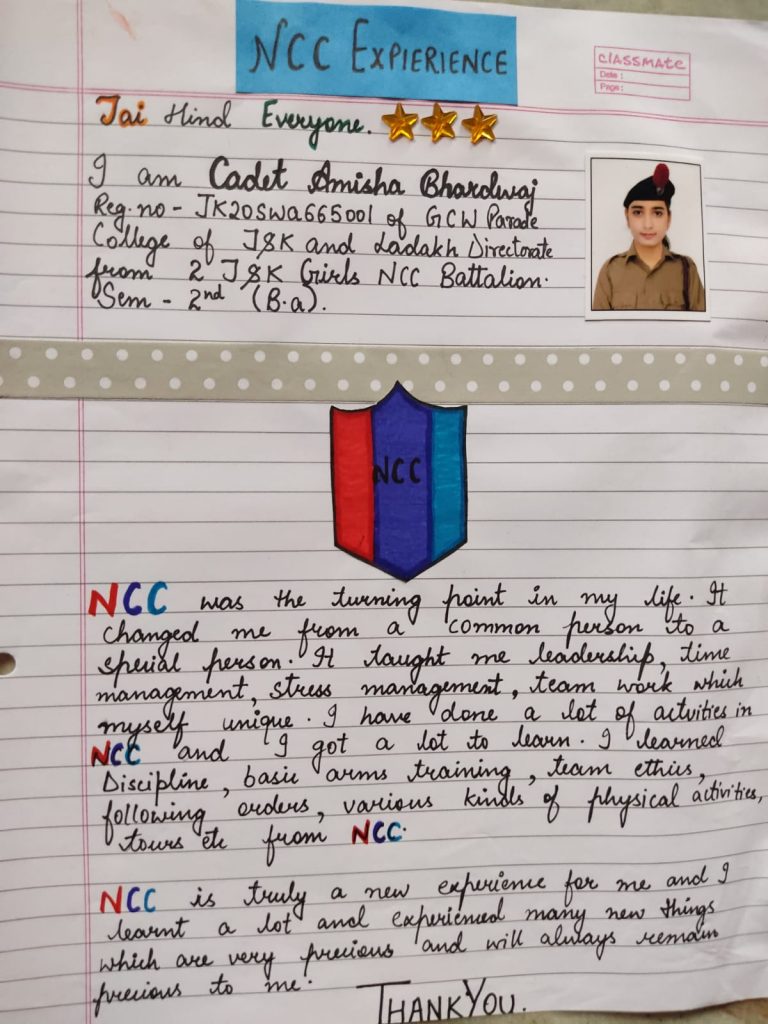 NCC EXPIERIENCE
CLASSMATE
Date :
Page :
Jai Hind Everyone.
I am Cadet Amisha Bhardwaj
Reg. no - JK20SWA665001 of GCW Parade
College of J&K and Ladakh Directorate
from 2 J&K Girls NCC Battalion.
Sem - 2nd (B.a).
NCC
NCC was the turning point in my life. It
changed me from a common person to a
special person. It taught me leadership, time
management, stress management, team work which
myself unique. I have done a lot of activities in
NCC and I got a lot to learn. I learned
Discipline, basic arms training, team ethics,
following orders, various kinds of physical activities,
tours etc from NCC.
NCC is truly a new experience for me and I
learnt a lot and experienced many new things
which are very precious and will always remain
precious to me.
THANK YOU.